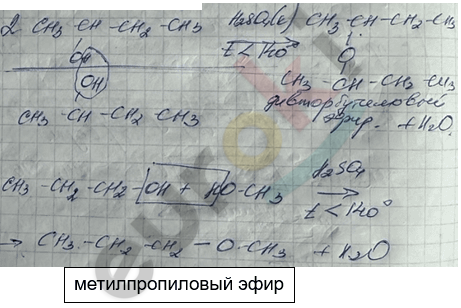 2 CH₃ - CH - CH₂ - CH₃ H₂SO₄(к) CH₃ - CH - CH₂ - CH₃
OH t < 140° O
OH CH₃ - CH - CH₂ CH₃
CH₃ - CH - CH₂ CH₃ дивторбутиловый
эфир. + H₂O
CH₃ - CH₂ - CH₂ - OH + HO - CH₃ H₂SO₄
t < 140°
→ CH₃ - CH₂ - CH₂ - O - CH₃ + H₂O
метилпропиловый эфир